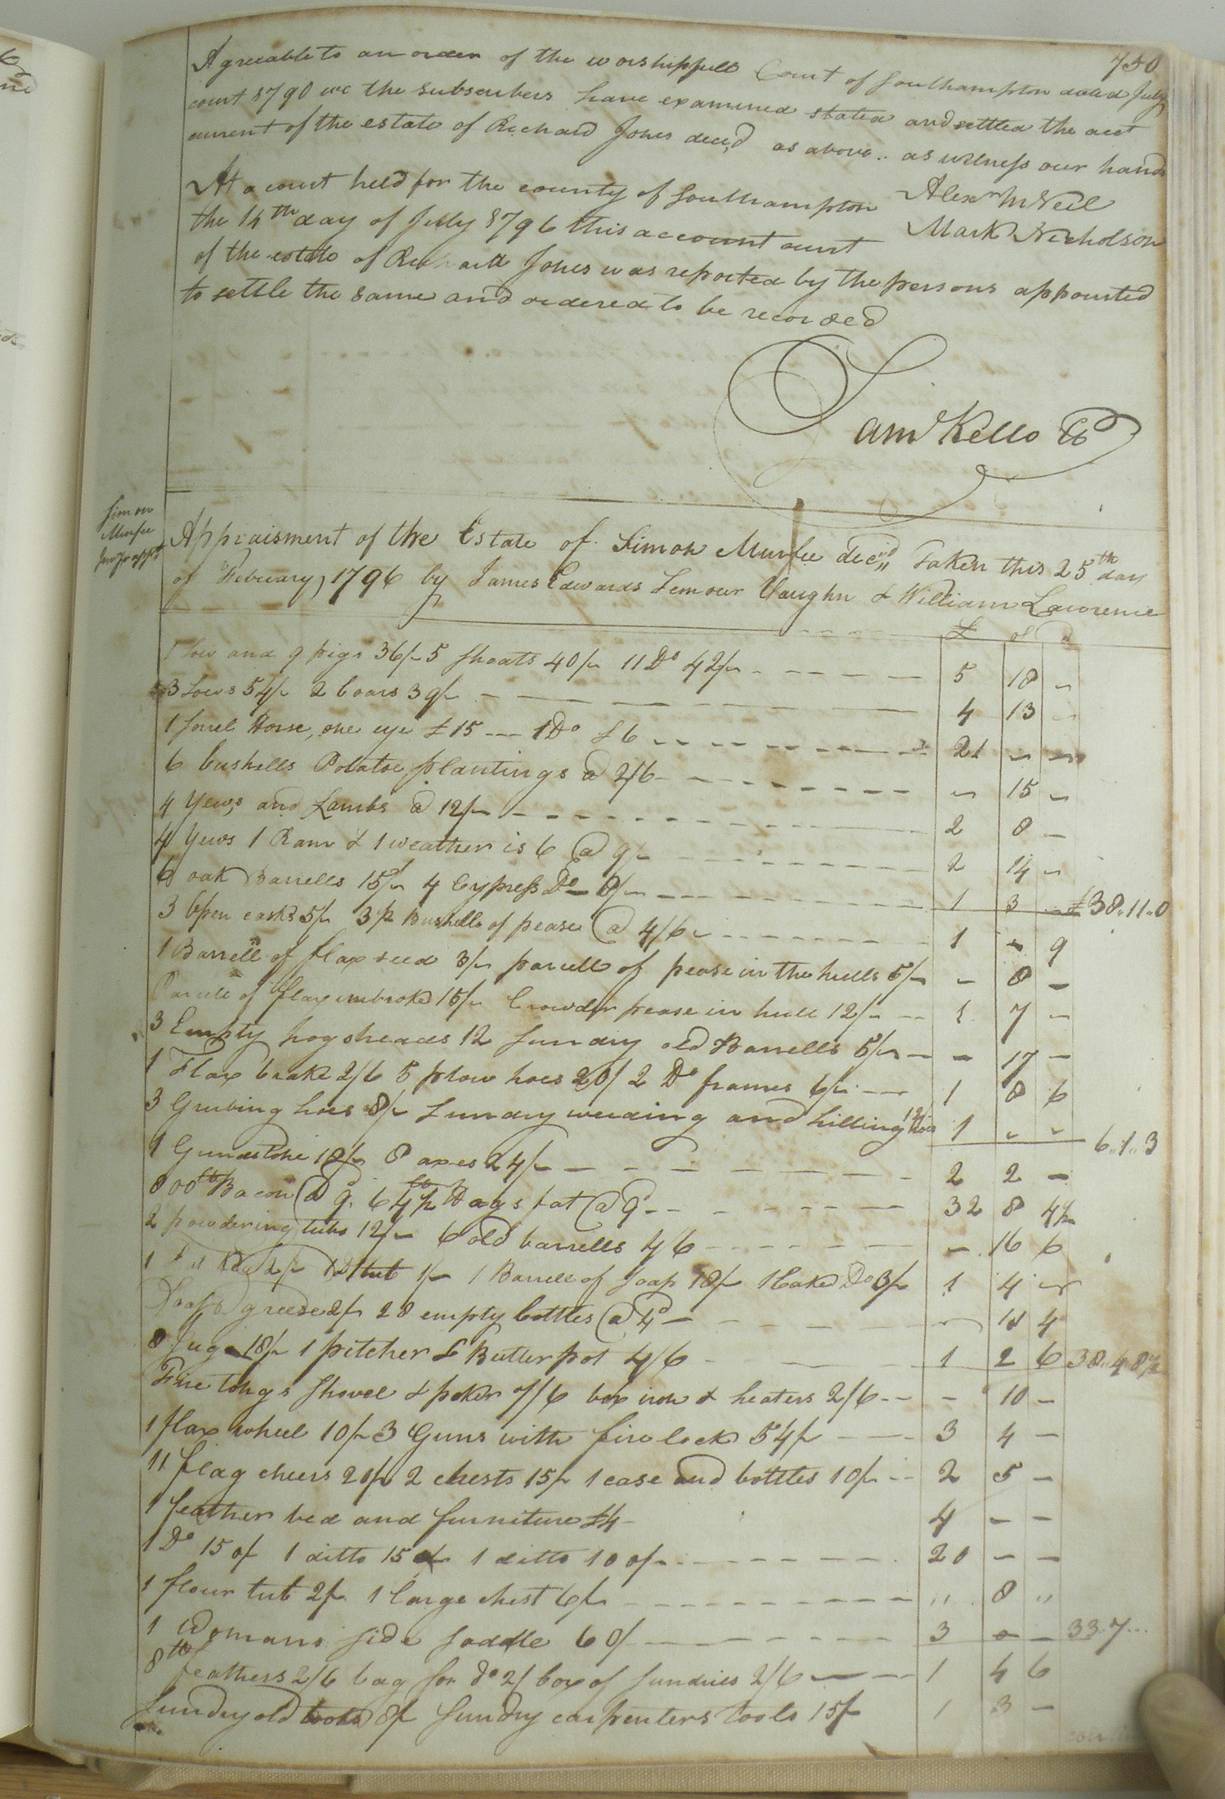 750
Agreeable to an order of the worshipfull Court of Southampton dated July
court 1790 we the subscribers have examined stated and settled the acct
current of the estate of Richard Jones decd as above .. as witness our hands
Alexr McNeil
Mark Nicholson
At a court held for the county of Southampton
the 14th day of July 1796 this account curt
of the estate of Richard Jones was reported by the persons appointed
to settle the same and ordered to be recorded
Saml Kello CC
Simon
Murfee
Appraisment of the Estate of Simon Murfee decd,, Taken this 25th day
of February, 1796 by James Edwards Lemour Vaughn & William Lawrence
£ S d
1 Sow and 9 pigs 36/- 5 Shoats 40/- 11 Do 42/- 5 18 -
3 Sows 54/- 2 boars 39/- 4 13 -
1 Sorrel Horse, one eye £15 --- 1 Do £6 21 - -
6 bushells Potatoe plantings @ 2/6 - 15 -
4 Yews and Lambs @ 12/- 2 8 -
4 Yews 1 Ram & 1 weather is 6 @ 9/- 2 14 -
6 oak Barrells 15/- 4 Cypress Do 8/- 1 3 - £38..11..0
3 open casks 5/- 3 1/2 Bushells of pease @ 4/6 1 - 9
1 Barrell of flax seed 3/- parcell of pease in the hulls 5/- - 8 -
Parcele of flax unbroke 15/- Crowder pease in hull 12/- 1 7 -
3 Empty hogsheads 12 Sundry old Barrells 5/- - 17 -
1 Flax brake 2/6 5 plow hoes 20/ 2 Do frames 6/- 1 8 6
3 Grubing hoes 8/- Sundry weeding and hilling hoes 12/ 1 - - 6..1..3
1 Grindstone 18/- 8 axes 24/- 2 2 -
800 lb Bacon @ 9. 64 1/2 lb Hags fat @ 9d 32 8 4 1/2
2 powdering tubs 12/- 6 old barrells 4/6 - 16 6
1 tub 1/- 1 Barrell of Soap 18/- 1 Cake Do 3/- 1 4 -
greese 2/- 28 empty bottles @ 4d - 11 4
8 Jugs 18/- 1 pitcher & Butter pot 4/6 1 2 6 38..4..8 1/2
Fire tongs Shovel & poker 7/6 box iron & heaters 2/6 - 10 -
1 flax wheel 10/- 3 Guns with fire lock 54/- 3 4 -
11 flag cheers 20/- 2 chests 15/- 1 case and bottles 10/- 2 5 -
1 feather bed and furniture £4 4 - -
1 Do 150/ 1 ditto 150/- 1 ditto 100/- 20 - -
1 flour tub 2/- 1 large chest 6/- ,, 8 ,,
1 Womans side saddle 60/ 3 0 - 33..7...
8 lb feathers 2/6 bag for do 2/ box of sundries 2/6 1 4 6
Sundry old tools 8/ Sundry carpenters tools 15/- 1 3 -